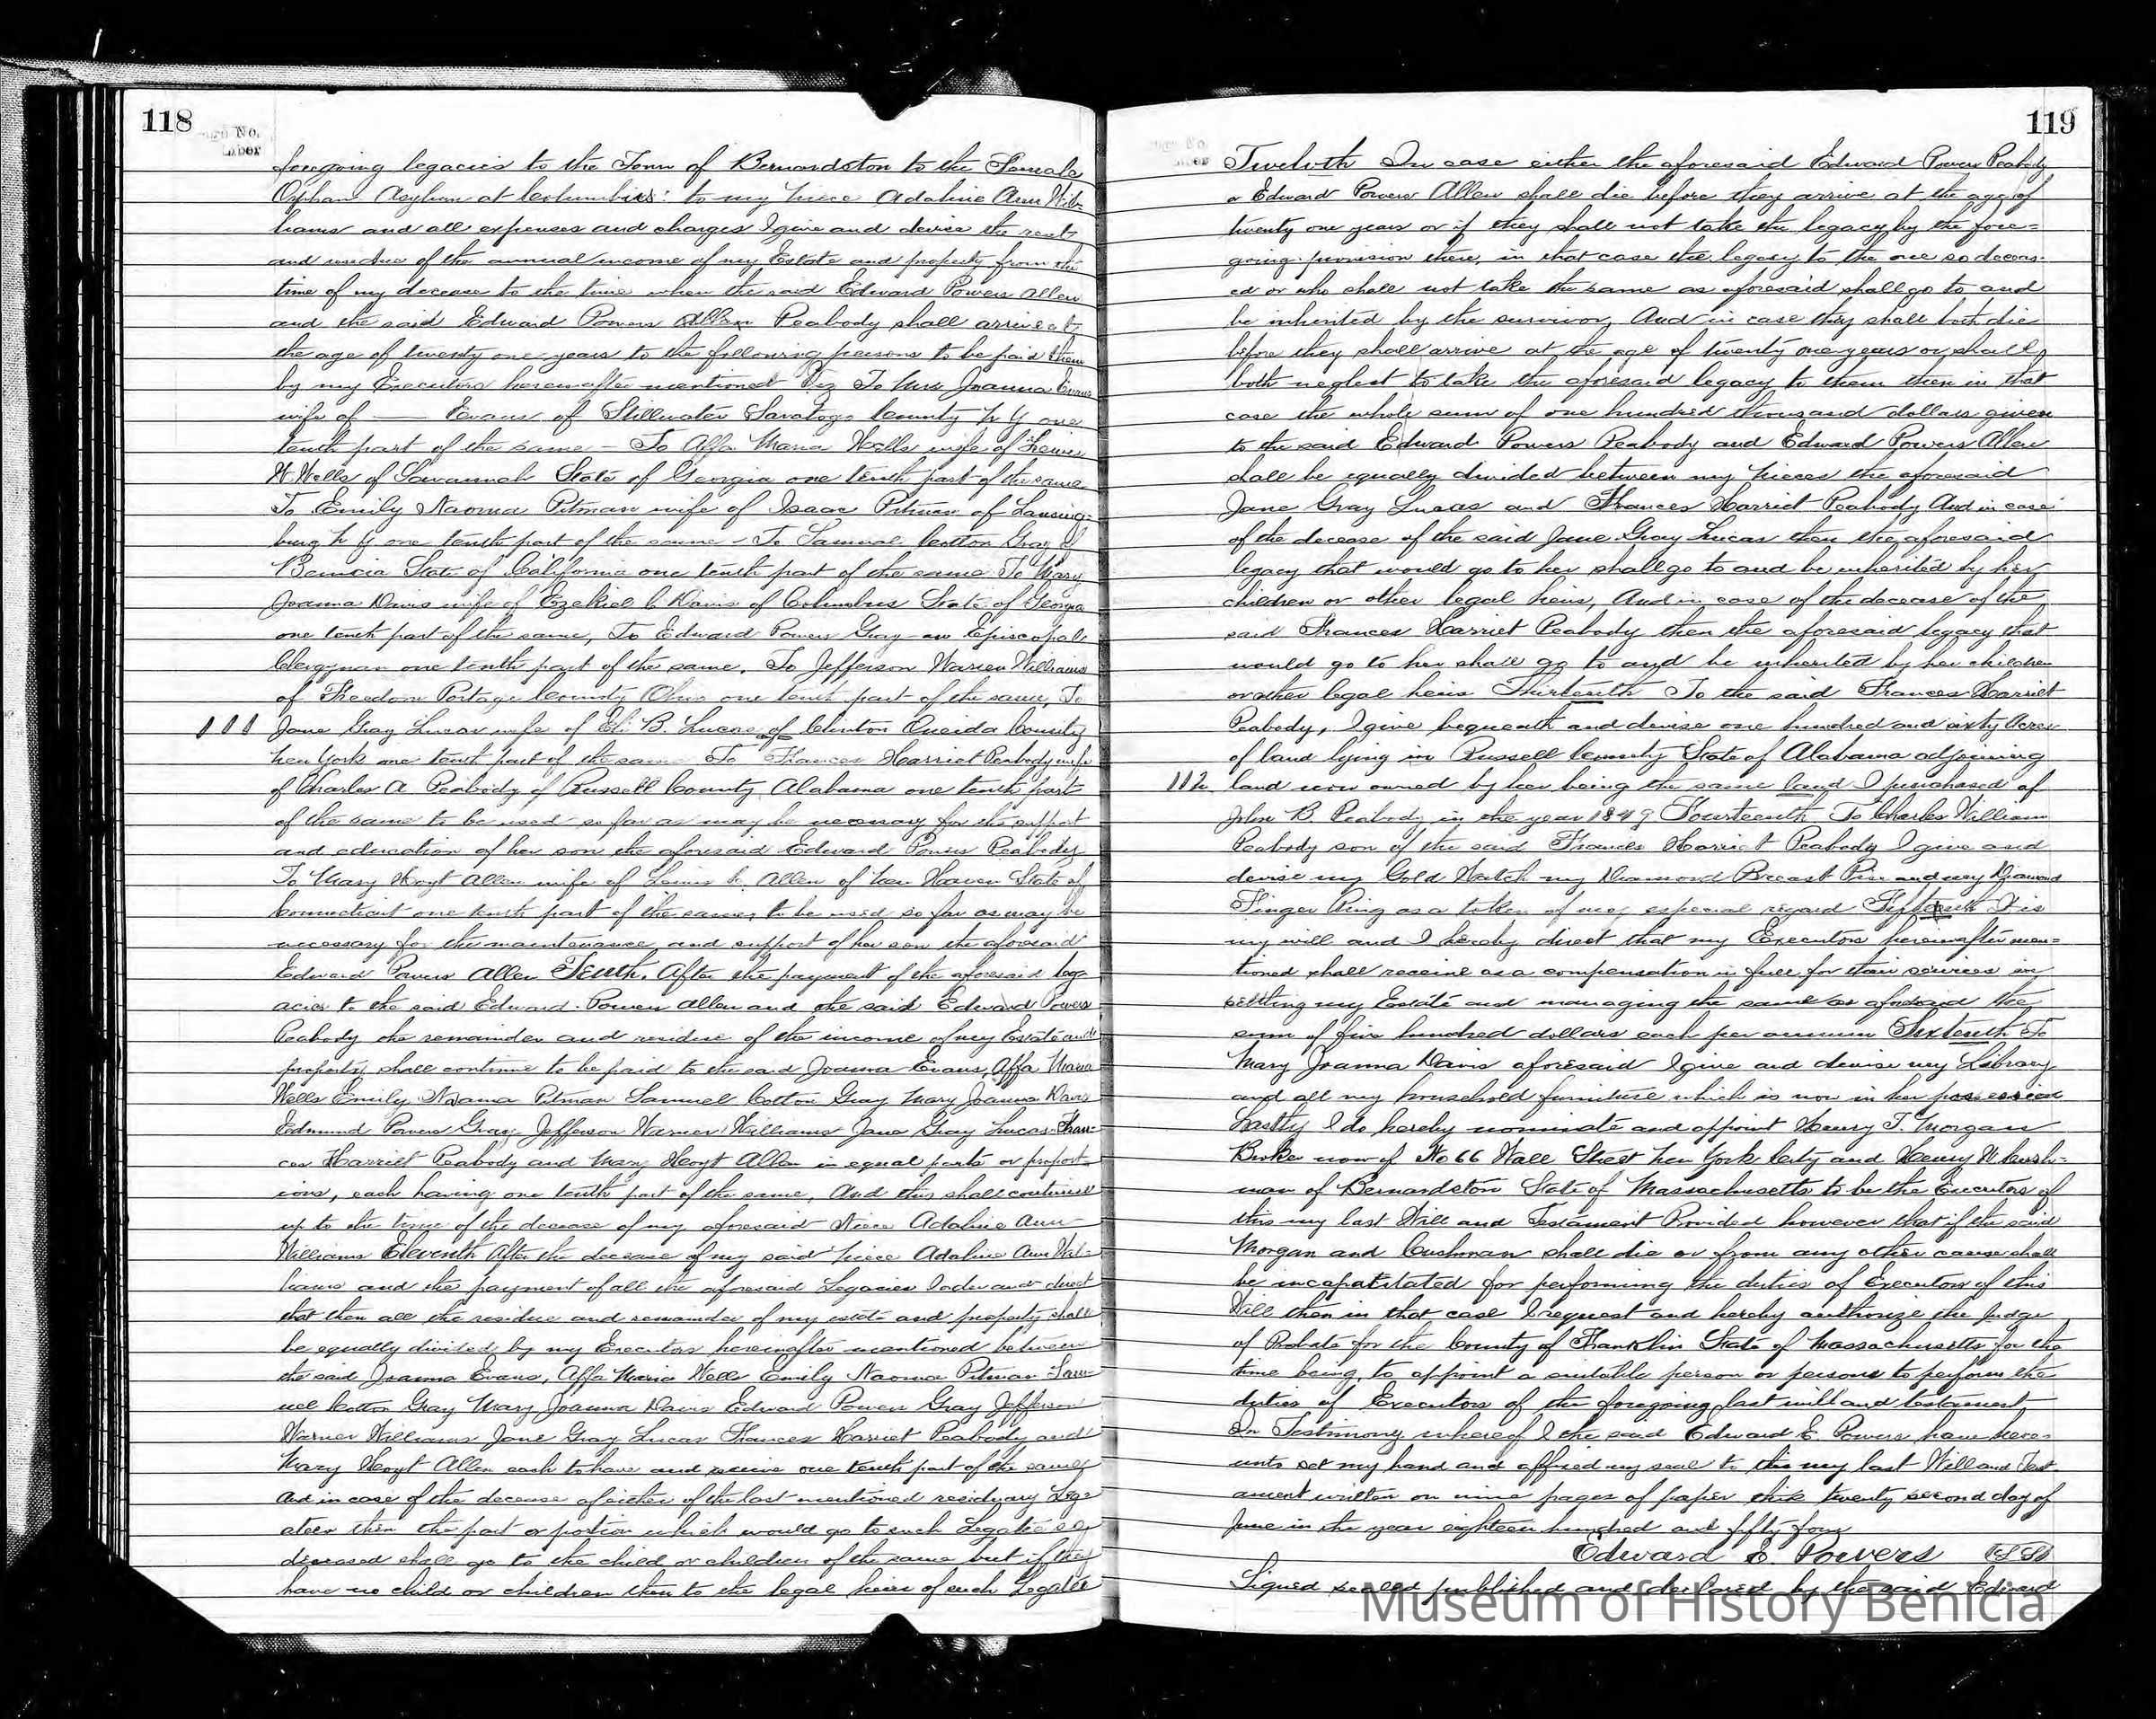 118
No.
Labor
foregoing legacies to the Town of Bernardston to the Female
Orphan Asylum at Columbus: to my niece Adaline Ann Wil-
liams and all expenses and charges I give and devise the rest
and residue of the annual income of my Estate and property from the
time of my decease to the time when the said Edward Powers Allen
and the said Edward Powers Allen Peabody shall arrive at
the age of twenty one years to the following persons to be paid them
by my Executors hereinafter mentioned Viz To Mrs Joanna Evans
wife of —— Evans of Stillwater Saratoga County N Y one
tenth part of the same – To Affa Maria Wells wife of Lewis
W Wells of Savannah State of Georgia one tenth part of the same
To Emily Naoma Pitman wife of Isaac Pitman of Lansing-
burg N Y one tenth part of the same – To Samuel Cotton Gray of
Benicia State of California one tenth part of the same To Mary
Joanna Davis wife of Ezekiel C. Davis of Columbus State of Georgia
one tenth part of the same, To Edward Powers Gray an Episcopal
Clergyman one tenth part of the same. To Jefferson Warner Williams
of Freedom Portage County Ohio one tenth part of the same, To
111 Jane Gray Lucas wife of Eli B. Lucas of Clinton Oneida County
New York one tenth part of the same To Frances Harriet Peabody wife
of Charles A Peabody of Russell County Alabama one tenth part
of the same to be used so far as may be necessary for the support
and education of her son the aforesaid Edward Powers Peabody
To Mary Hoyt Allen wife of Lewis Allen of New Haven State of
Connecticut one tenth part of the same, to be used so far as may be
necessary for the maintenance and support of her son the aforesaid
Edward Powers Allen Tenth. After the payment of the aforesaid leg-
acies to the said Edward Powers Allen and the said Edward Powers
Peabody the remainder and residue of the income of my Estate and
property shall continue to be paid to the said Joanna Evans, Affa Maria
Wells Emily Naoma Pitman Samuel Cotton Gray Mary Joanna Davis
Edmund Powers Gray Jefferson Warner Williams Jane Gray Lucas Fran-
ces Harriet Peabody and Mary Hoyt Allen in equal parts or proport-
ions, each having one tenth part of the same, And this shall continue
up to the time of the decease of my aforesaid Niece Adaline Ann
Williams Eleventh After the decease of my said niece Adaline Ann Wil-
liams and the payment of all the aforesaid Legacies I order and direct
that then all the residue and remainder of my estate and property shall
be equally divided by my Executors hereinafter mentioned between
the said Joanna Evans, Affa Maria Wells Emily Naoma Pitman Sam-
uel Cotton Gray Mary Joanna Davis Edward Powers Gray Jefferson
Warner Williams Jane Gray Lucas Frances Harriet Peabody and
Mary Hoyt Allen each to have and receive one tenth part of the same
And in case of the decease of either of the last mentioned residuary Leg-
atees then the part or portion which would go to such Legatee so
deceased shall go to the child or children of the same but if they
have no child or children then to the legal heirs of such Legatee
119
Twelvth In case either the aforesaid Edward Powers Peabody
or Edward Powers Allen shall die before they arrive at the age of
twenty one years or if they shall not take the legacy by the fore-
going provision there, in that case the legacy to the one so deceas-
ed or who shall not take the same as aforesaid shall go to and
be inherited by the survivor, And in case they shall both die
before they shall arrive at the age of twenty one years or shall
both neglect to take the aforesaid legacy to them then in that
case the whole sum of one hundred thousand dollars given
to the said Edward Powers Peabody and Edward Powers Allen
shall be equally divided between my nieces the aforesaid
Jane Gray Lucas and Frances Harriet Peabody And in case
of the decease of the said Jane Gray Lucas then the aforesaid
legacy that would go to her shall go to and be inherited by her
children or other legal heirs, And in case of the decease of the
said Frances Harriet Peabody then the aforesaid legacy that
would go to her shall go to and be inherited by her children
or other legal heirs Thirteenth To the said Frances Harriet
Peabody, I give bequeath and devise one hundred and sixty Acres
of land lying in Russell County State of Alabama adjoining
112 land now owned by her being the same land I purchased of
John B. Peabody in the year 1849 Fourteenth To Charles William
Peabody son of the said Frances Harriet Peabody I give and
devise my Gold Watch my Diamond Breast Pin and my Diamond
Finger Ring as a token of my especial regard Fifteenth It is
my will and I hereby direct that my Executors hereinafter men-
tioned shall receive as a compensation in full for their services in
settling my Estate and managing the same as aforesaid the
sum of five hundred dollars each per annum Sixteenth To
Mary Joanna Davis aforesaid I give and devise my Library
and all my household furniture which is now in her possession
Lastly I do hereby nominate and appoint Henry T. Morgan
Broker now of No 66 Wall Street New York City and Henry W Cush-
man of Bernardston State of Massachusetts to be the Executors of
this my last Will and Testament Provided however that if the said
Morgan and Cushman shall die or from any other cause shall
be incapatitated for performing the duties of Executors of this
Will then in that case I request and hereby authorize the Judge
of Probate for the County of Franklin State of Massachusetts for the
time being, to appoint a suitable person or persons to perform the
duties of Executors of the foregoing last will and testament
In Testimony whereof I the said Edward E. Powers have here-
unto set my hand and affixed my seal to this my last Will and Test-
ament written on nine pages of paper this twenty second day of
June in the year eighteen hundred and fifty four
Edward E. Powers (LS)
Signed sealed published and declared by the said Edward
Museum of History Benicia